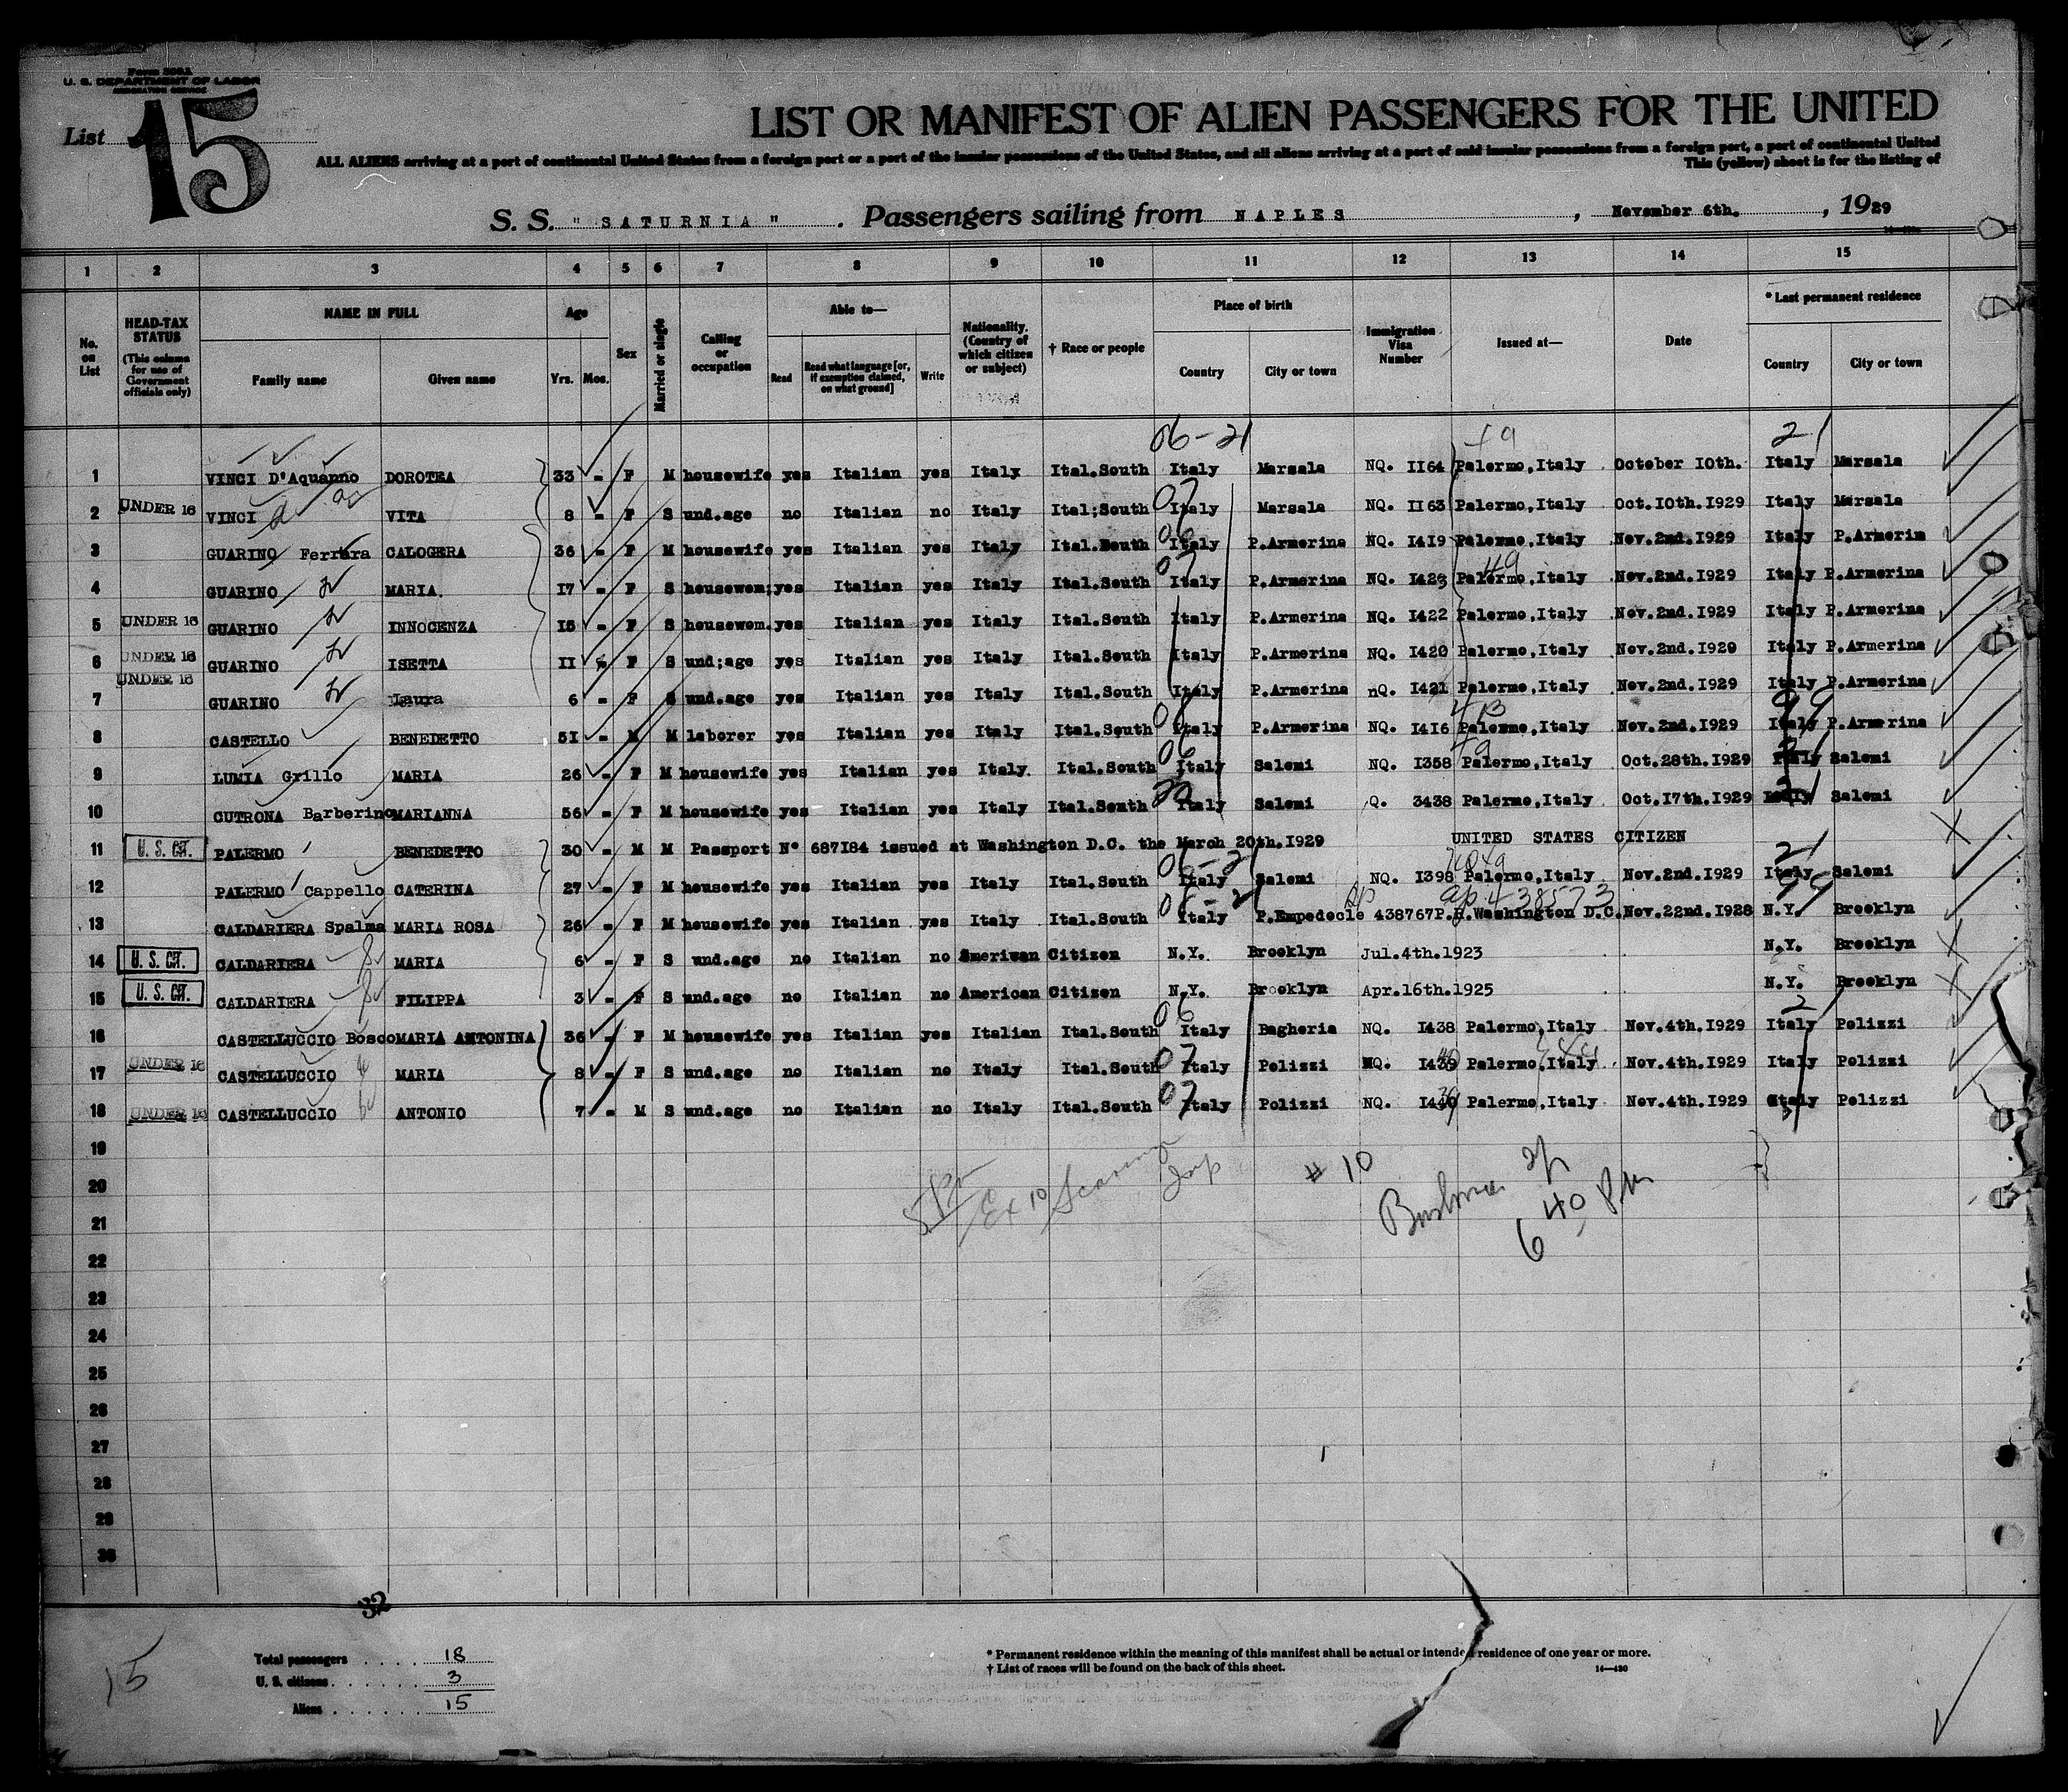 Form 500A
U. S. DEPARTMENT OF LABOR
IMMIGRATION SERVICE
List 15
LIST OR MANIFEST OF ALIEN PASSENGERS FOR THE UNITED
ALL ALIENS arriving at a port of continental United States from a foreign port or a port of the insular possessions of the United States, and all aliens arriving at a port of said insular possessions from a foreign port, a port of continental United
This (yellow) sheet is for the listing of
S. S. "SATURNIA". Passengers sailing from NAPLES, November 6th., 1929
1 2 3 4 5 6 7 8 9 10 11 12 13 14 15
No. on List
HEAD-TAX STATUS (This column for use of Government officials only)
NAME IN FULL
Family name
Given name
Age
Yrs. Mos.
Sex
Married or single
Calling or occupation
Able to—
Read
Read what language [or, if exemption claimed, on what ground]
Write
Nationality. (Country of which citizen or subject)
† Race or people
Place of birth
Country
City or town
Immigration Visa Number
Issued at—
Date
* Last permanent residence
Country
City or town
06-21 49 21
1 VINCI D'Aquanno DOROTEA 33 - F M housewife yes Italian yes Italy Ital.South Italy Marsala NQ. II64 Palermo,Italy October I0th. Italy Marsala
2 UNDER 16 VINCI VITA 8 - F S und.age no Italian no Italy Ital;South 07 Italy Marsala NQ. II63 Palermo,Italy Oct.I0th.I929 Italy Marsala
3 GUARINO Ferrara CALOGERA 36 - F M housewife yes Italian yes Italy Ital.South 06 Italy P.Armerina NQ. I4I9 Palermo,Italy Nov.2nd.I929 Italy P.Armerin
4 GUARINO MARIA. I7 - F S housewom; yes Italian yes Italy Ital.South 07 Italy P.Armerina NQ. I423 Palermo,Italy 49 Nov.2nd.I929 Italy P.Armerina
5 UNDER 16 GUARINO INNOCENZA I5 - F S housewom. yes Italian yes Italy Ital.South Italy P.Armerina NQ. I422 Palermo,Italy Nov.2nd.I929 Italy P.Armerina
6 UNDER 16 GUARINO ISETTA II - F S und;age yes Italian yes Italy Ital.South Italy P.Armerina NQ. I420 Palermo,Italy Nov.2nd.I929 Italy P.Armerina
7 UNDER 16 GUARINO Laura 6 - F S und.age yes Italian yes Italy Ital.South Italy P.Armerina nQ. I421 Palermo,Italy Nov.2nd.I929 Italy P.Armerina
8 CASTELLO BENEDETTO 5I - M M laborer yes Italian yes Italy Ital.South 06 Italy P.Armerina NQ. I4I6 Palermo,Italy Nov.2nd.I929 Italy P.Armerina
9 LUMIA Grillo MARIA 26 - F M housewife yes Italian yes Italy. Ital.South 06 Italy Salemi NQ. I358 Palermo,Italy 49 Oct.28th.I929 Italy Salemi
10 CUTRONA Barberino MARIANNA 56 - F M housewife yes Italian yes Italy Ital.South Italy Salemi Q. 3438 Palermo,Italy Oct.I7th.I929 Italy Salemi
11 U. S. CIT. PALERMO BENEDETTO 30 - M M Passport N° 687I84 issued at Washington D.C. the March 20th.I929 UNITED STATES CITIZEN
12 PALERMO Cappello CATERINA 27 - F M housewife yes Italian yes Italy Ital.South Italy Salemi NQ. I398 Palermo,Italy Nov.2nd.I929 21 Italy Salemi
13 CALDARIERA Spalma MARIA ROSA 26 - F M housewife yes Italian yes Italy Ital.South Italy P.Empedocle 438767P.R.Washington D.C. Nov.22nd.I928 99 N.Y. Brooklyn
14 U. S. CIT. CALDARIERA MARIA 6 - F S und.age no Italian no American Citizen N.Y. Brooklyn Jul.4th.1923 N.Y. Brooklyn
15 U. S. CIT. CALDARIERA FILIPPA 3 - F S und.age no Italian no American Citizen N.Y. Brooklyn Apr.I6th.1925 N.Y. Brooklyn
16 CASTELLUCCIO Bosco MARIA ANTONINA 36 - F M housewife yes Italian yes Italian Ital.South 06 Italy Bagheria NQ. I438 Palermo,Italy Nov.4th.I929 Italy Polizzi
17 UNDER 16 CASTELLUCCIO MARIA 8 - F S und.age no Italian no Italy Ital.South 07 Italy Polizzi NQ. I439 Palermo,Italy Nov.4th.I929 Italy Polizzi
18 UNDER 16 CASTELLUCCIO ANTONIO 7 - M S und.age no Italian no Italy Ital.South 07 Italy Polizzi NQ. I440 Palermo,Italy Nov.4th.I929 Italy Polizzi
19
20 # 10
21 6 40 Pm
22
23
24
25
26
27
28
29
30
32
15
Total passengers . . . . . 18
U. S. citizens . . . . . . . 3
Aliens . . . . . . . 15
* Permanent residence within the meaning of this manifest shall be actual or intended residence of one year or more.
† List of races will be found on the back of this sheet.
14—430